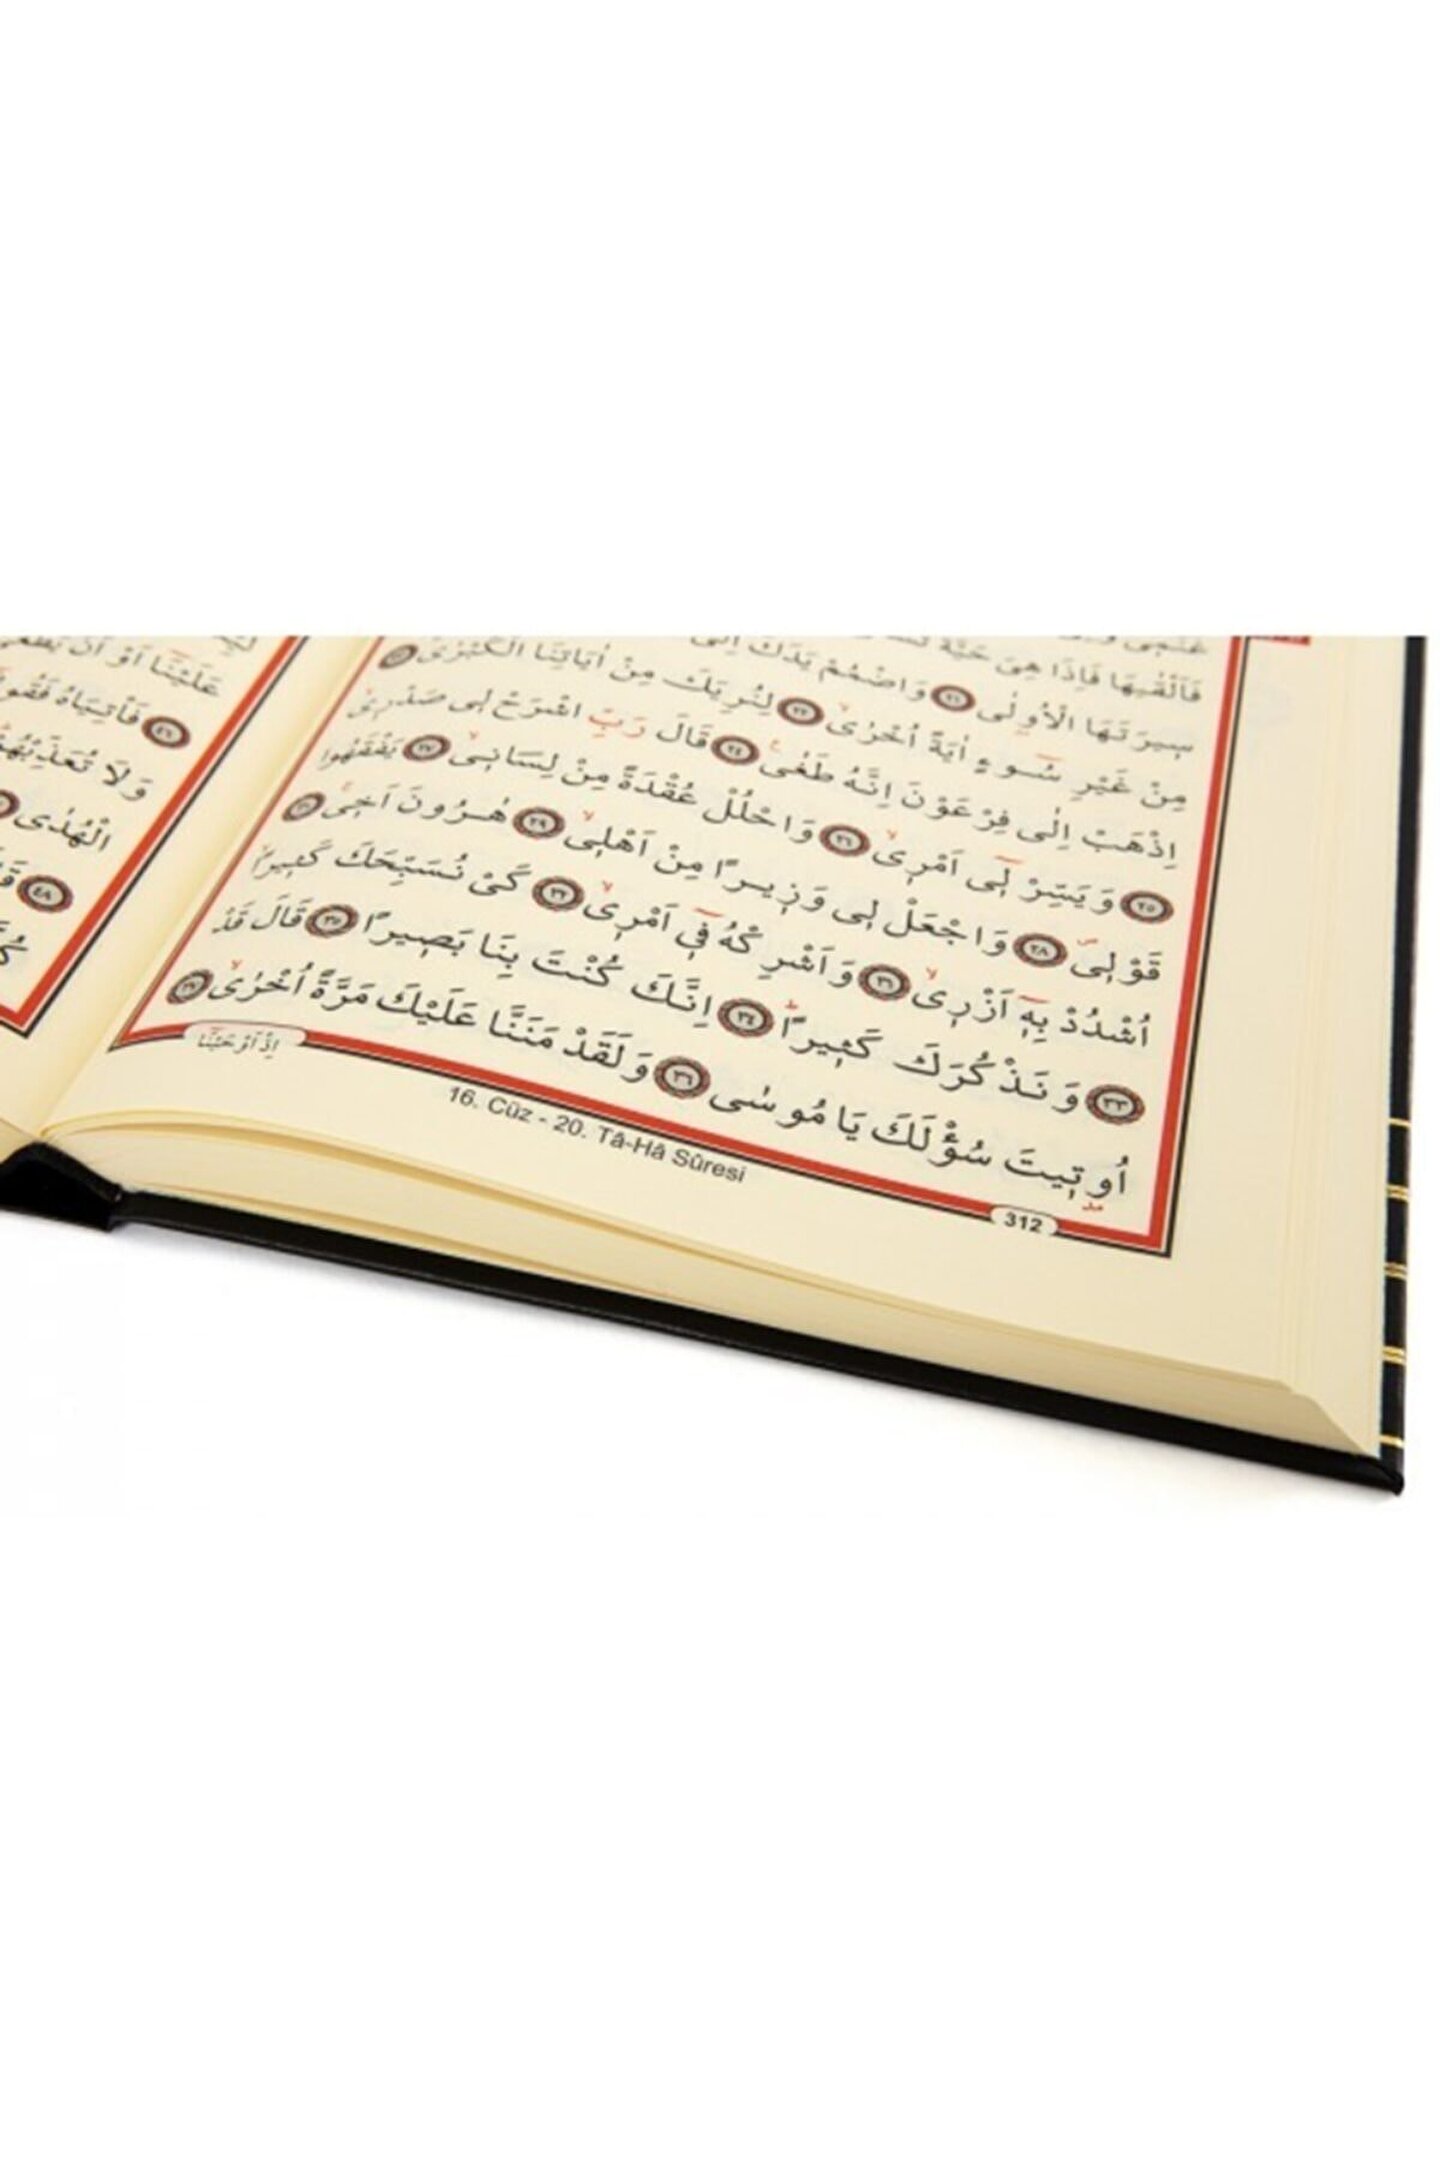 فَاَلْقٰيهَا فَاِذَا هِيَ حَيَّةٌ
سِيرَتَهَا الْاُولٰى ﴿٢١﴾ وَاضْمُمْ يَدَكَ اِلٰى
مِنْ غَيْرِ سُوءٍ اٰيَةً اُخْرٰىۙ ﴿٢٢﴾ لِنُرِيَكَ مِنْ اٰيَاتِنَا الْكُبْرٰىۚ ﴿٢٣﴾
اِذْهَبْ اِلٰى فِرْعَوْنَ اِنَّهُ طَغٰى۟ ﴿٢٤﴾ قَالَ رَبِّ اشْرَحْ لِي صَدْرِيۙ
﴿٢٥﴾ وَيَسِّرْ لِٓي اَمْرِيۙ ﴿٢٦﴾ وَاحْلُلْ عُقْدَةً مِنْ لِسَانِيۙ ﴿٢٧﴾ يَفْقَهُوا
قَوْلِيۖ ﴿٢٨﴾ وَاجْعَلْ لِي وَزِيرًا مِنْ اَهْلِيۙ ﴿٢٩﴾ هٰرُونَ اَخِيۚ ﴿٣٠﴾
اُشْدُدْ بِهٓ اَزْرِيۙ ﴿٣١﴾ وَاَشْرِكْهُ فِٓي اَمْرِيۙ ﴿٣٢﴾ كَيْ نُسَبِّحَكَ كَثِيرًاۙ
﴿٣٣﴾ وَنَذْكُرَكَ كَثِيرًاۜ ﴿٣٤﴾ اِنَّكَ كُنْتَ بِنَا بَصِيرًا ﴿٣٥﴾ قَالَ قَدْ
اُو۫تِيتَ سُؤْلَكَ يَا مُوسٰى ﴿٣٦﴾ وَلَقَدْ مَنَنَّا عَلَيْكَ مَرَّةً اُخْرٰىۙ ﴿٣٧﴾
اِذْ اَوْحَيْنَٓا
312
16. Cüz - 20. Tâ-Hâ Sûresi
عَلَيْنَٓا اَوْ اَنْ يَطْغٰى
﴿٤٦﴾ فَأْتِيَاهُ
وَلَا تُعَذِّبْهُمْ
الْهُدٰى
﴿٤٨﴾